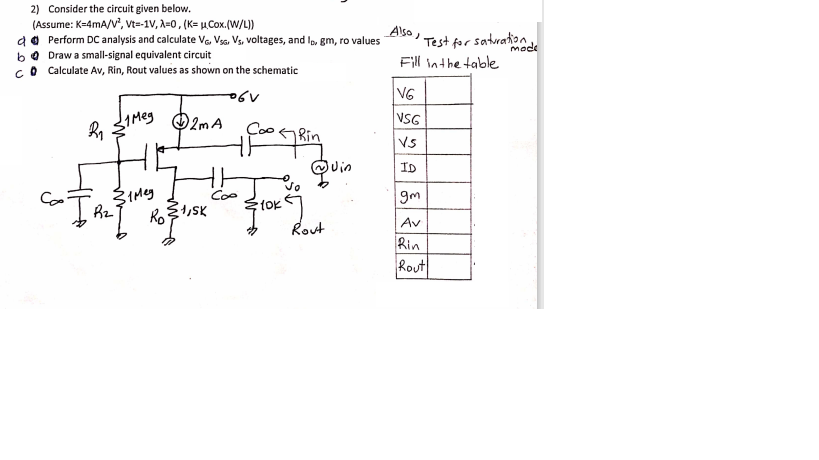 2) Consider the circuit given below.
(Assume: K=4mA/V², Vt=-1V, λ=0, (K= μCox.(W/L))
a Perform DC analysis and calculate VG, VSG, VS, voltages, and ID, gm, ro values Also, Test for saturation mode
b Draw a small-signal equivalent circuit
c Calculate Av, Rin, Rout values as shown on the schematic
Fill in the table
6V
R1 1Meg 2mA C∞ Rin
Vin
C∞ R2 1Meg RD 1,5K C∞ 10K Vo
Rout
VG
VSG
VS
ID
gm
Av
Rin
Rout